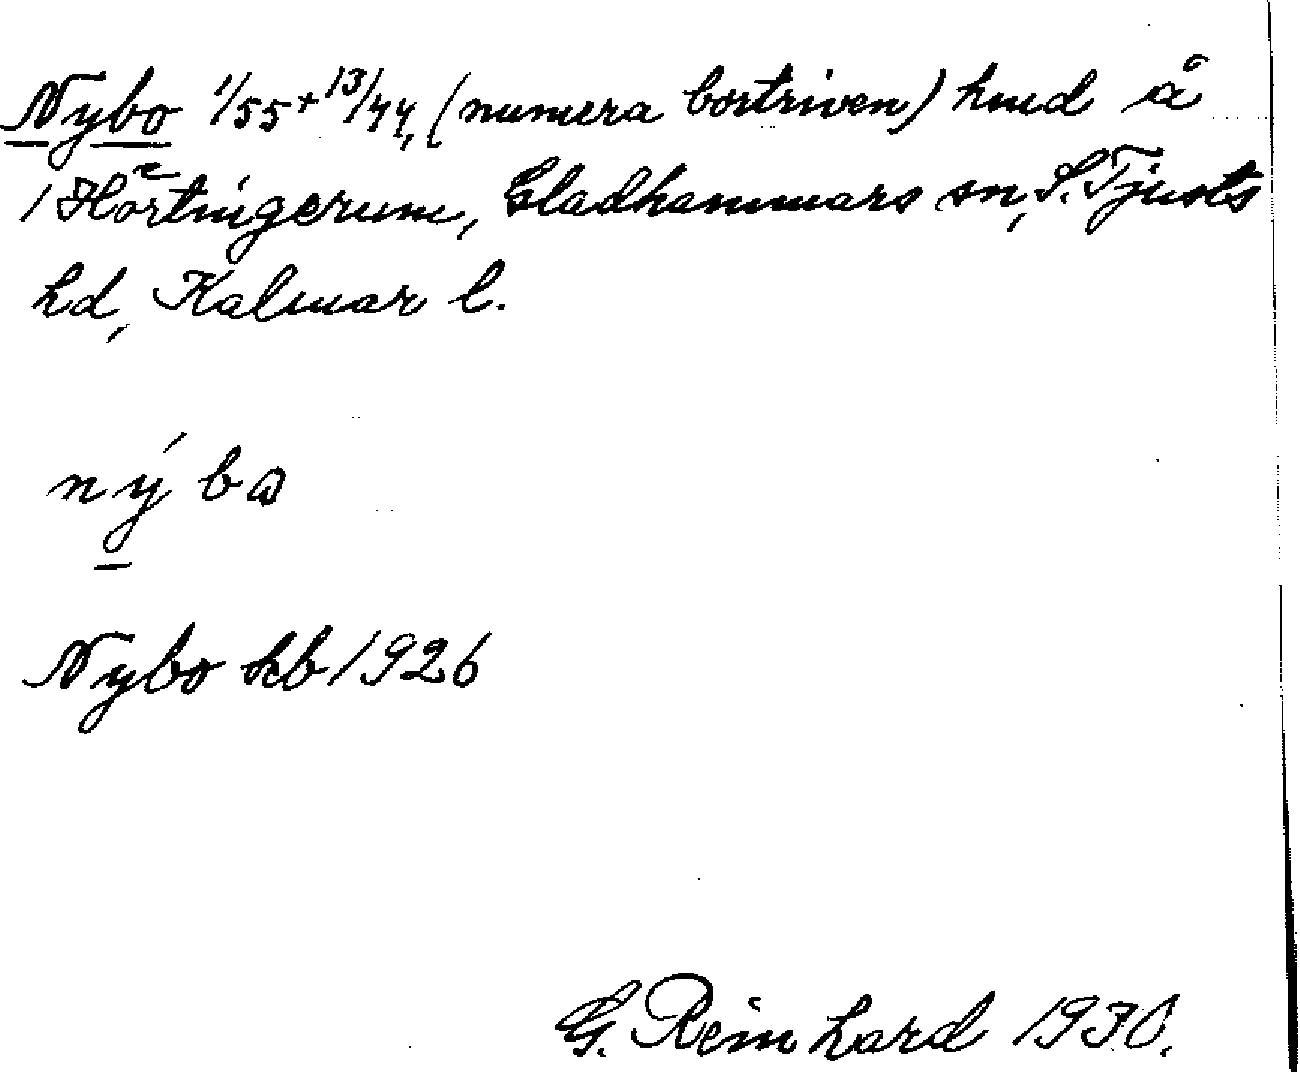 Nybo 1/55+13/44, (numera bortriven) hmd å
1 Hörtingerum, Gladhammars sn, S. Tjusts
hd, Kalmar l.
nýbω
Nybo kb 1926
G. Reinhard 1930.